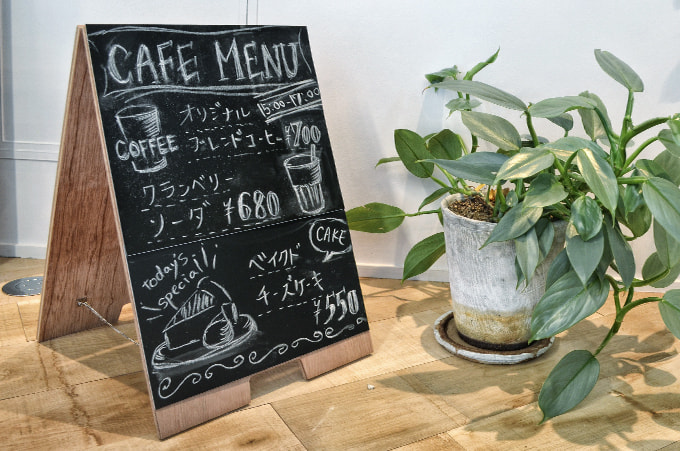 CAFE MENU
オリジナル 15:00-17:00
COFFEE ブレンドコーヒー ¥700
クランベリー
ソーダ ¥680
CAKE
Today's
special!
ベイクド
チーズケーキ
¥550